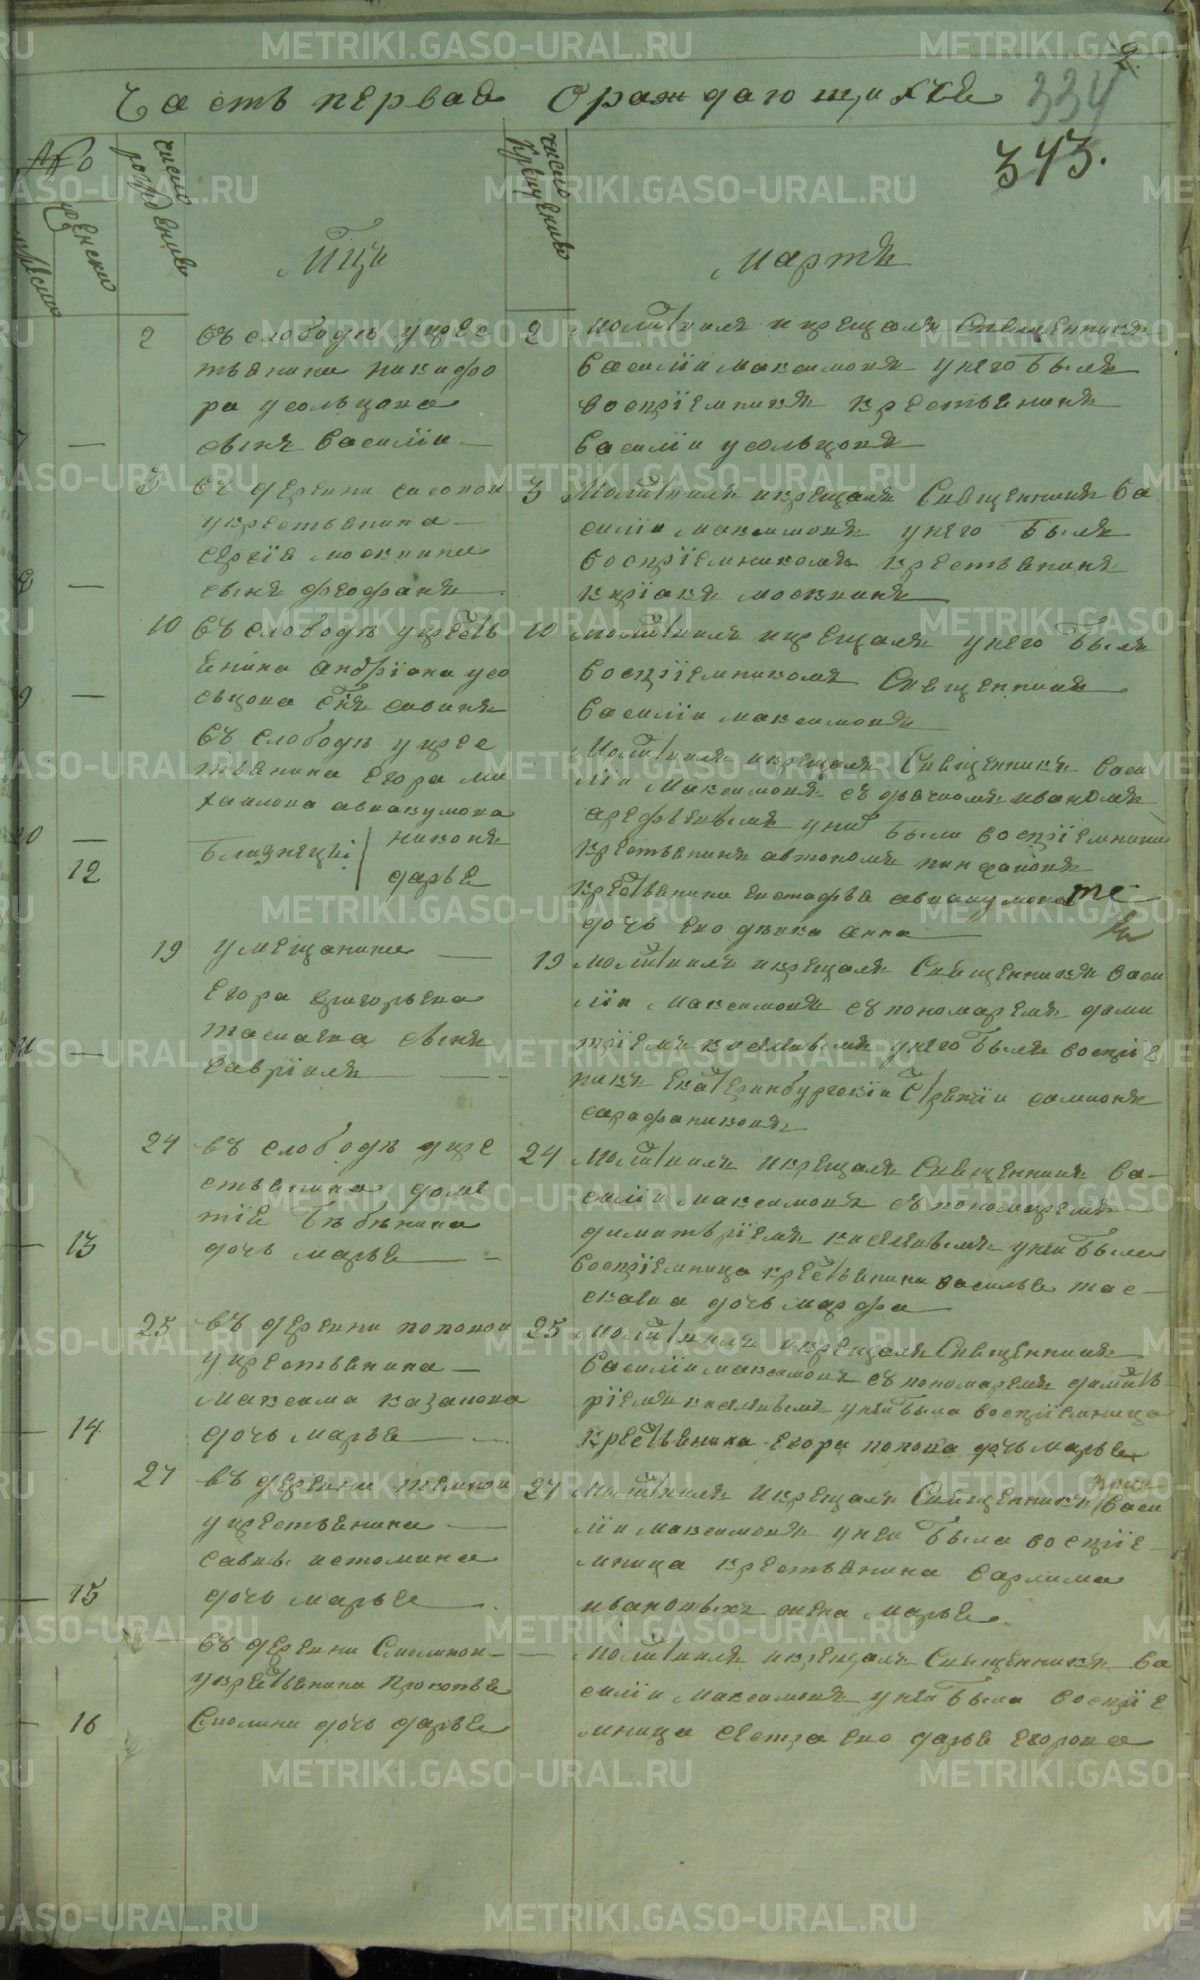 Часть первая О раждающихся
334
343.
№
мужеска
женска
число рождения
число крещения
Мца
Марта
2 въ слободѣ у крес
тьянина Никифо
ра Усольцова
7 — сынъ Василии —
2 Молитвилъ и крещалъ Священникъ
Василии Максимовъ у него былъ
восприемникъ крестьянинъ
Василии Усольцовъ
3 въ деревни
у крестьянина —
Сергiя Москвина
8 — сынъ Феофанъ —
3 Молитвилъ и крещалъ Священникъ Ва
силiи Максимовъ у него былъ
восприемникомъ крестьянинъ
Кирiакъ Москвинъ
10 въ слободѣ у кресть
янина Андрiяна Усо
9 — льцова снъ Савинъ
10 Молитвилъ и крещалъ у него былъ
восприемникомъ Священникъ
Василiи Максимовъ
въ слободѣ у крес
тьянина Егора Ми
хаилова Аввакумова
10 — близнецы Никонъ
12 Дарья
Молитвилъ и крещалъ Священникъ Васи
лiи Максимовъ съ дьячкомъ Иваномъ
Арефьевымъ у них были восприемники
крестьянинъ Автономъ
крестьянина Евстафья Аввакумова
дочь ево девка Анна —
19 у мещанина —
Егора Григорьева
Таскаева сынъ
11 — Гаврiилъ —
19 Молитвилъ и крещалъ Священникъ Васи
лiи Максимовъ съ пономаремъ Дими
трiемъ у него былъ восприе
никъ Екатеринбургскiи Симионъ
Сарафанниковъ
24 въ слободѣ у кре
стьянина Доме
тiя Бабкина
13 дочь Марья —
24 Молитвилъ и крещалъ Священникъ Ва-
силiи Максимовъ съ пономаремъ
Димитрiемъ у неи была
восприемница крестьянина Василья Тас-
каева дочь Марфа —
25 въ деревни Поповои
у крестьянина —
Максима Казакова
14 дочь Марья —
25 Молитвилъ и крещалъ Священникъ
Василiи Максимовъ съ пономаремъ Димит
рiемъ у неи была восприемница
крестьянина Егора Попова дочь Марья
27 въ деревни Темнои
у крестьянина —
Савы Истомина
15 дочь Марья —
27 Молитвилъ и крещалъ Священникъ Васи
лiи Максимовъ у неи была восприе-
мница крестьянина Варлама
Ивановыхъ жена Марья
въ деревни
у крестьянина Прокопья
16 Смолина дочь Дарья
— Молитвилъ и крещалъ Священникъ Ва
силiи Максимовъ у неи была восприе
мница сестра ево Дарья Егорова
METRIKI.GASO-URAL.RU